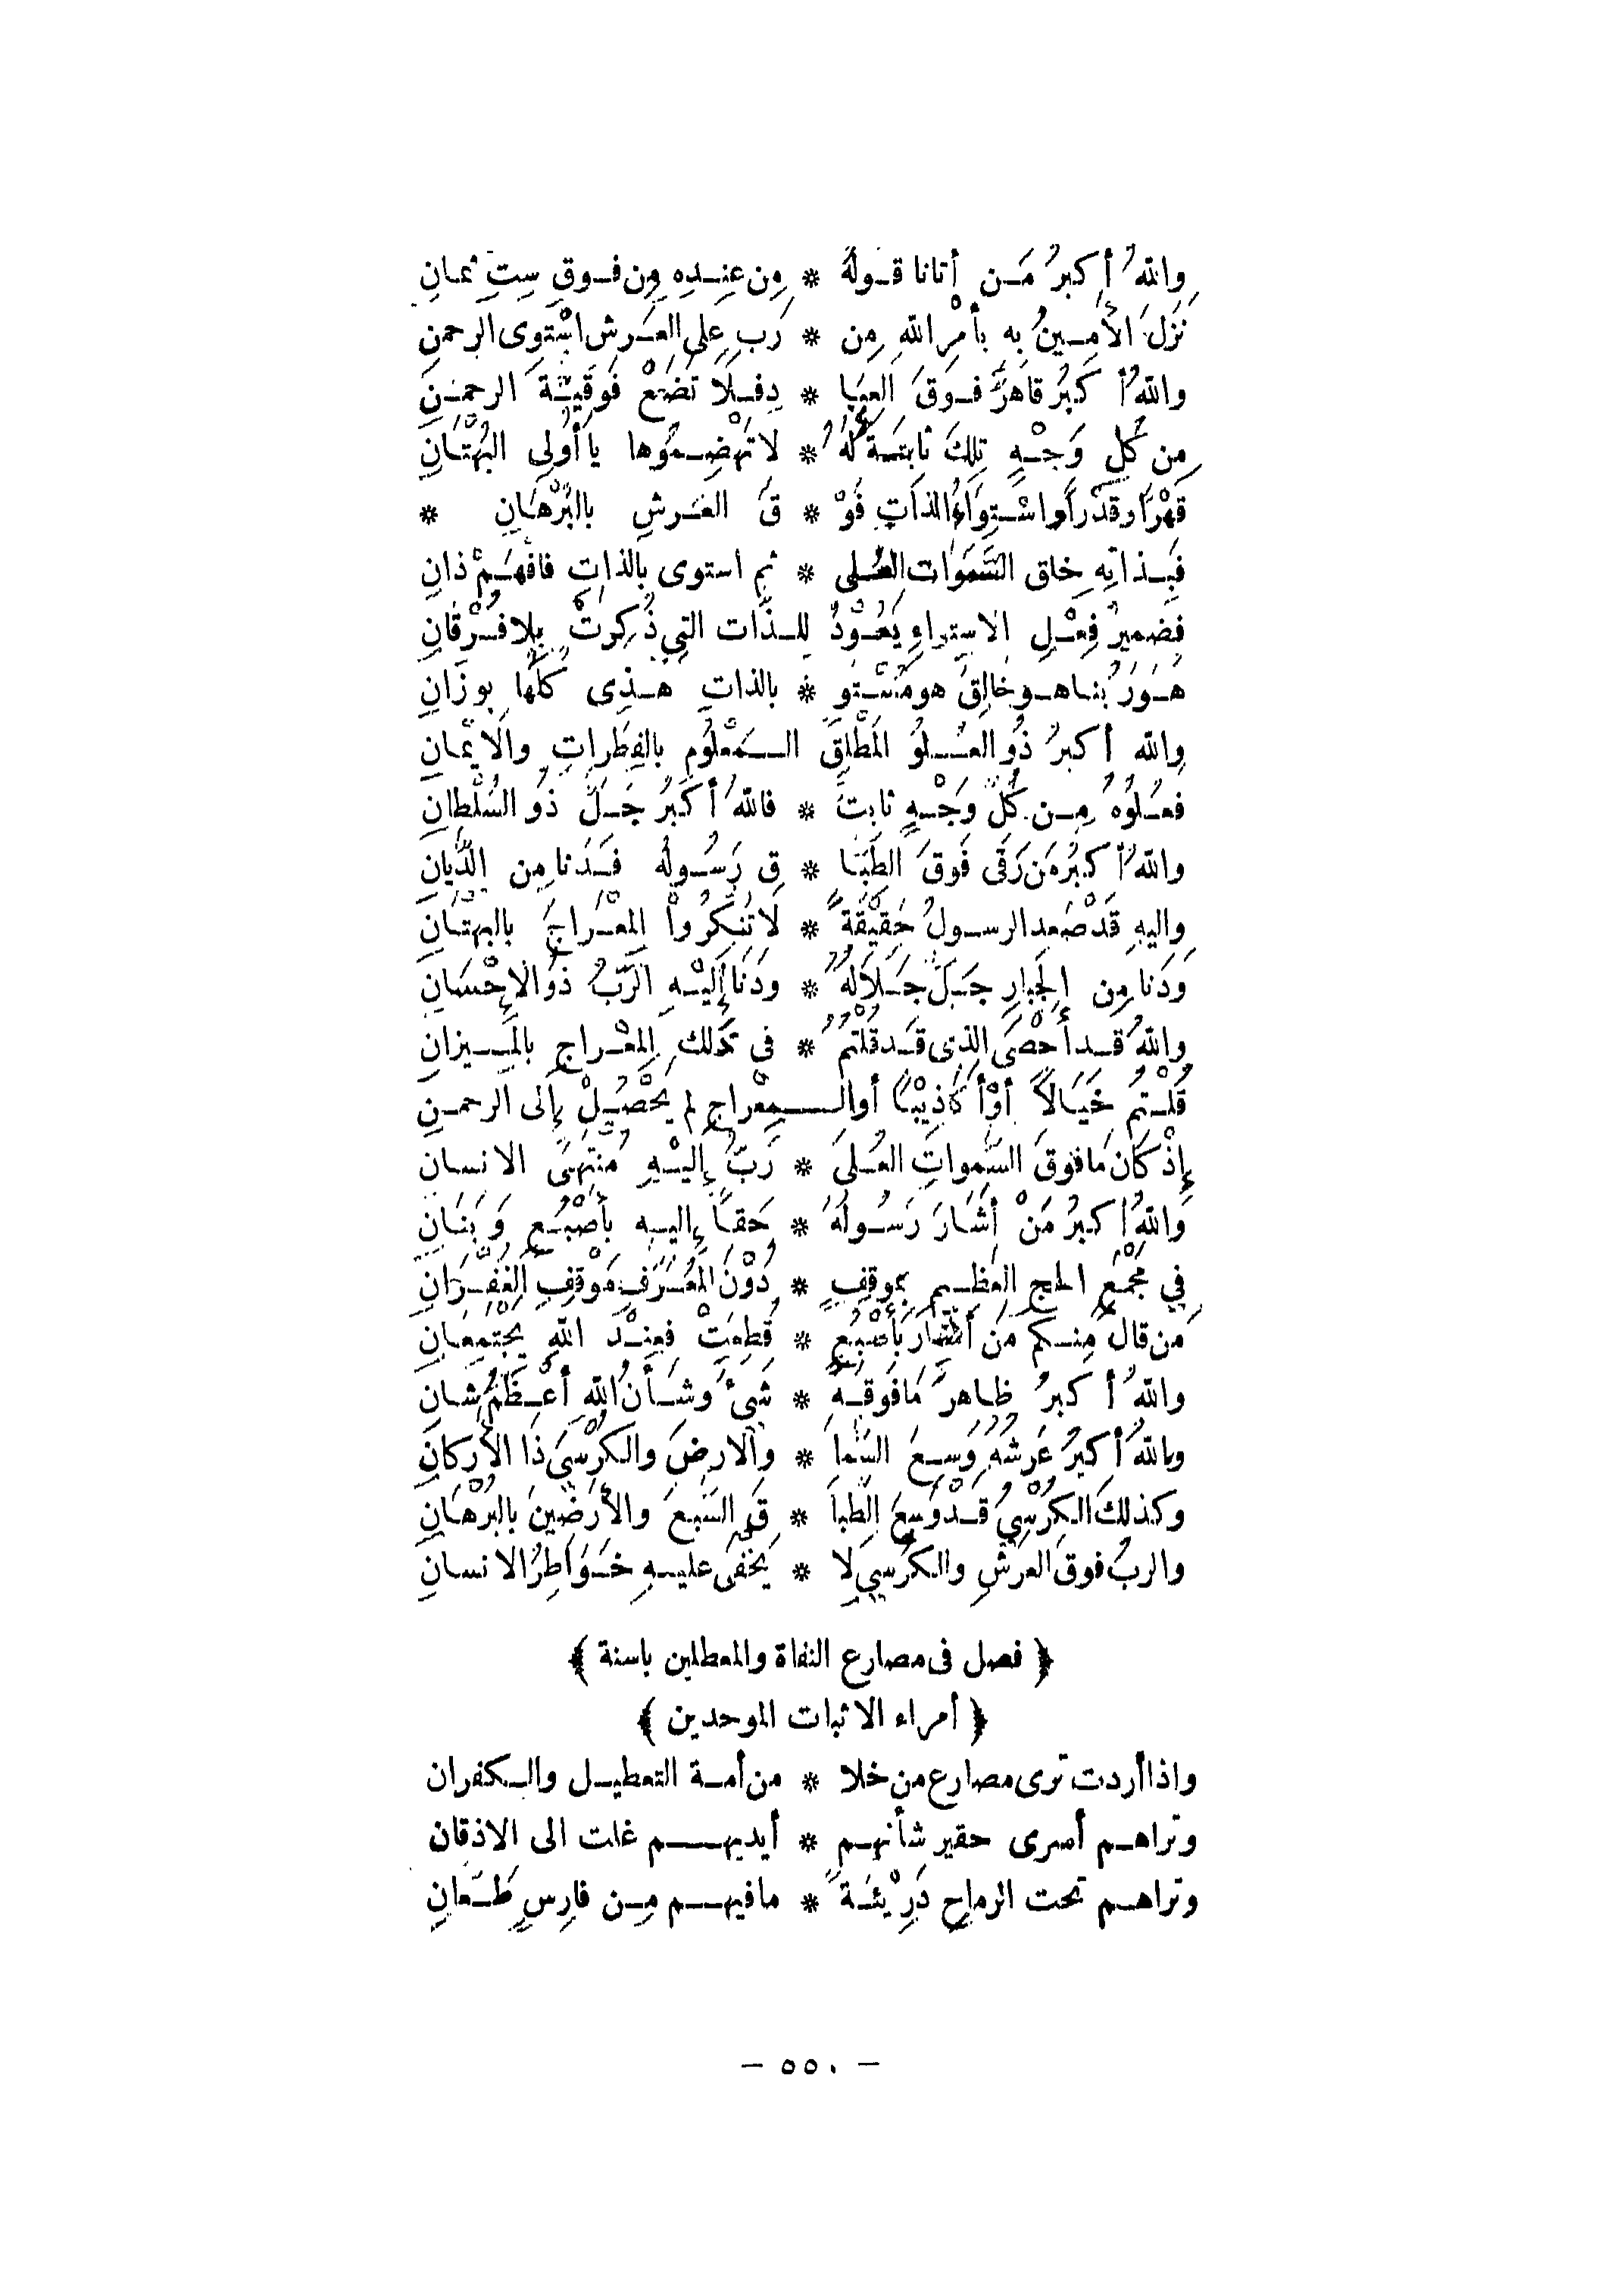 واللهُ أكبرُ مَن أتانا قولهُ * مِن عِندِه مِن فوقِ سِتِ ثمانِ
نَزَلَ الأمينُ به بأمْرِ اللهِ مِن * رَبٍ على العَرشِ اسْتوى الرحمنِ
واللهُ أكبرُ قاهرٌ فوقَ العِبَا * دِ فلا تَضَعْ فَوقيةَ الرحمنِ
مِن كُلِ وَجْهٍ تِلكَ ثابتةٌ لهُ * لا تهْضِمُوها يا أُولى البُهْتَانِ
قَهْرًا وقَدْرًا واسْتِوَاءُ الذاتِ فَوْ * قَ العَرشِ بالبُرْهَانِ *
فبِذاتِه خلق السَّمَوَات العُلى * ثم استوى بالذات فافهَمْ ذانِ
فضميرُ فِعْلِ الاستواءِ يَعُوْدُ للذَّات التي ذُكِرتْ بِلا فُرْقانِ
هُوَ رَبُنا هو خالِقٌ هو مُسْتوٍ * بالذاتِ هذِى كلُّها بوزَانِ
والله أكبرُ ذُو العُلوُ المُطْلقَ المَعْلُوم بالفِطَراتِ والايْمانِ
فعُلوُهُ مِن كُلِّ وَجْهٍ ثابتٌ * فاللهُ أكبَرُ جَلَّ ذُو السُلْطانِ
واللهُ أكبرُ مَن رَقَى فَوقَ الطِبَا * قِ رَسُولهُ فدَنا مِن الدَّيانِ
واليهِ قَدْ صَعِد الرسولُ حَقِيْقَةً * لاتُنْكِرُوا المِعْراجَ بالبهتانِ
ودَنا مِن الجَبارِ جَلَّ جَلَالهُ * ودَنَا إليْهِ الرَّبُ ذُو الإحْسَانِ
واللهُ قد أحْصَى الذى قَد قُلْتمُ * فى ذلك المِعْراجِ بالميزانِ
قُلْتُم خَيَالاً أوْ أكاذِيْبًا أوالمِعْراجِ لم يَحْصُلْ إلى الرحمنِ
إذْ كانَ مافوقَ السَّمواتِ العُلىَ * رَبٌّ إليْهِ مُنْتهىَ الانسان
واللهُ أكبرُ مَنْ أشَارَ رَسُولُهُ * حَقاً إليه بأصْبُعٍ وَبَنَانِ
فِي مَجْمَعِ الحج العَظِيمِ بموقِفٍ * دُوْنَ المُعَرَّفِ مَوْقِفِ الغُفْرَانِ
مَن قال مِنكم مَن أشَارَ بأصْبُعٍ * قُطِعَتْ فعِنْدَ اللهِ يجْتمِعَانِ
واللهُ أكبرُ ظاهرٌ مَا فَوقهُ * شَئٌ وشأنُ اللهِ أعْظَمُ شانِ
واللهُ أكبرُ عَرشُهُ وَسِعَ السَّما * والارضَ والكُرْسِيَ ذَا الأركانِ
وكذلكَ الكُرْسِيُ قَدْ وَسِعَ الطِّبا * قَ السَّبعَ والأرَضِينَ بالبُرْهَانِ
والربُ فوقَ العرشِ والكُرْسِي لا * يَخْفَى عليهِ خَوَاطِرُ الانسانِ
﴿ فصل فى مصارع النفاة والمعطلين باسنة ﴾
﴿ أمراء الاثبات الموحدين ﴾
واذا أردت ترى مصارع من خلا * من أمة التعطيل والكفران
وتراهم أسرى حقير شأنهم * أيديهم غلت الى الاذقان
وتراهم تحت الرماحِ دَرِيْئَةً * مافيهم مِن فارِسٍ طَعانِ
— ٥٥٠ —